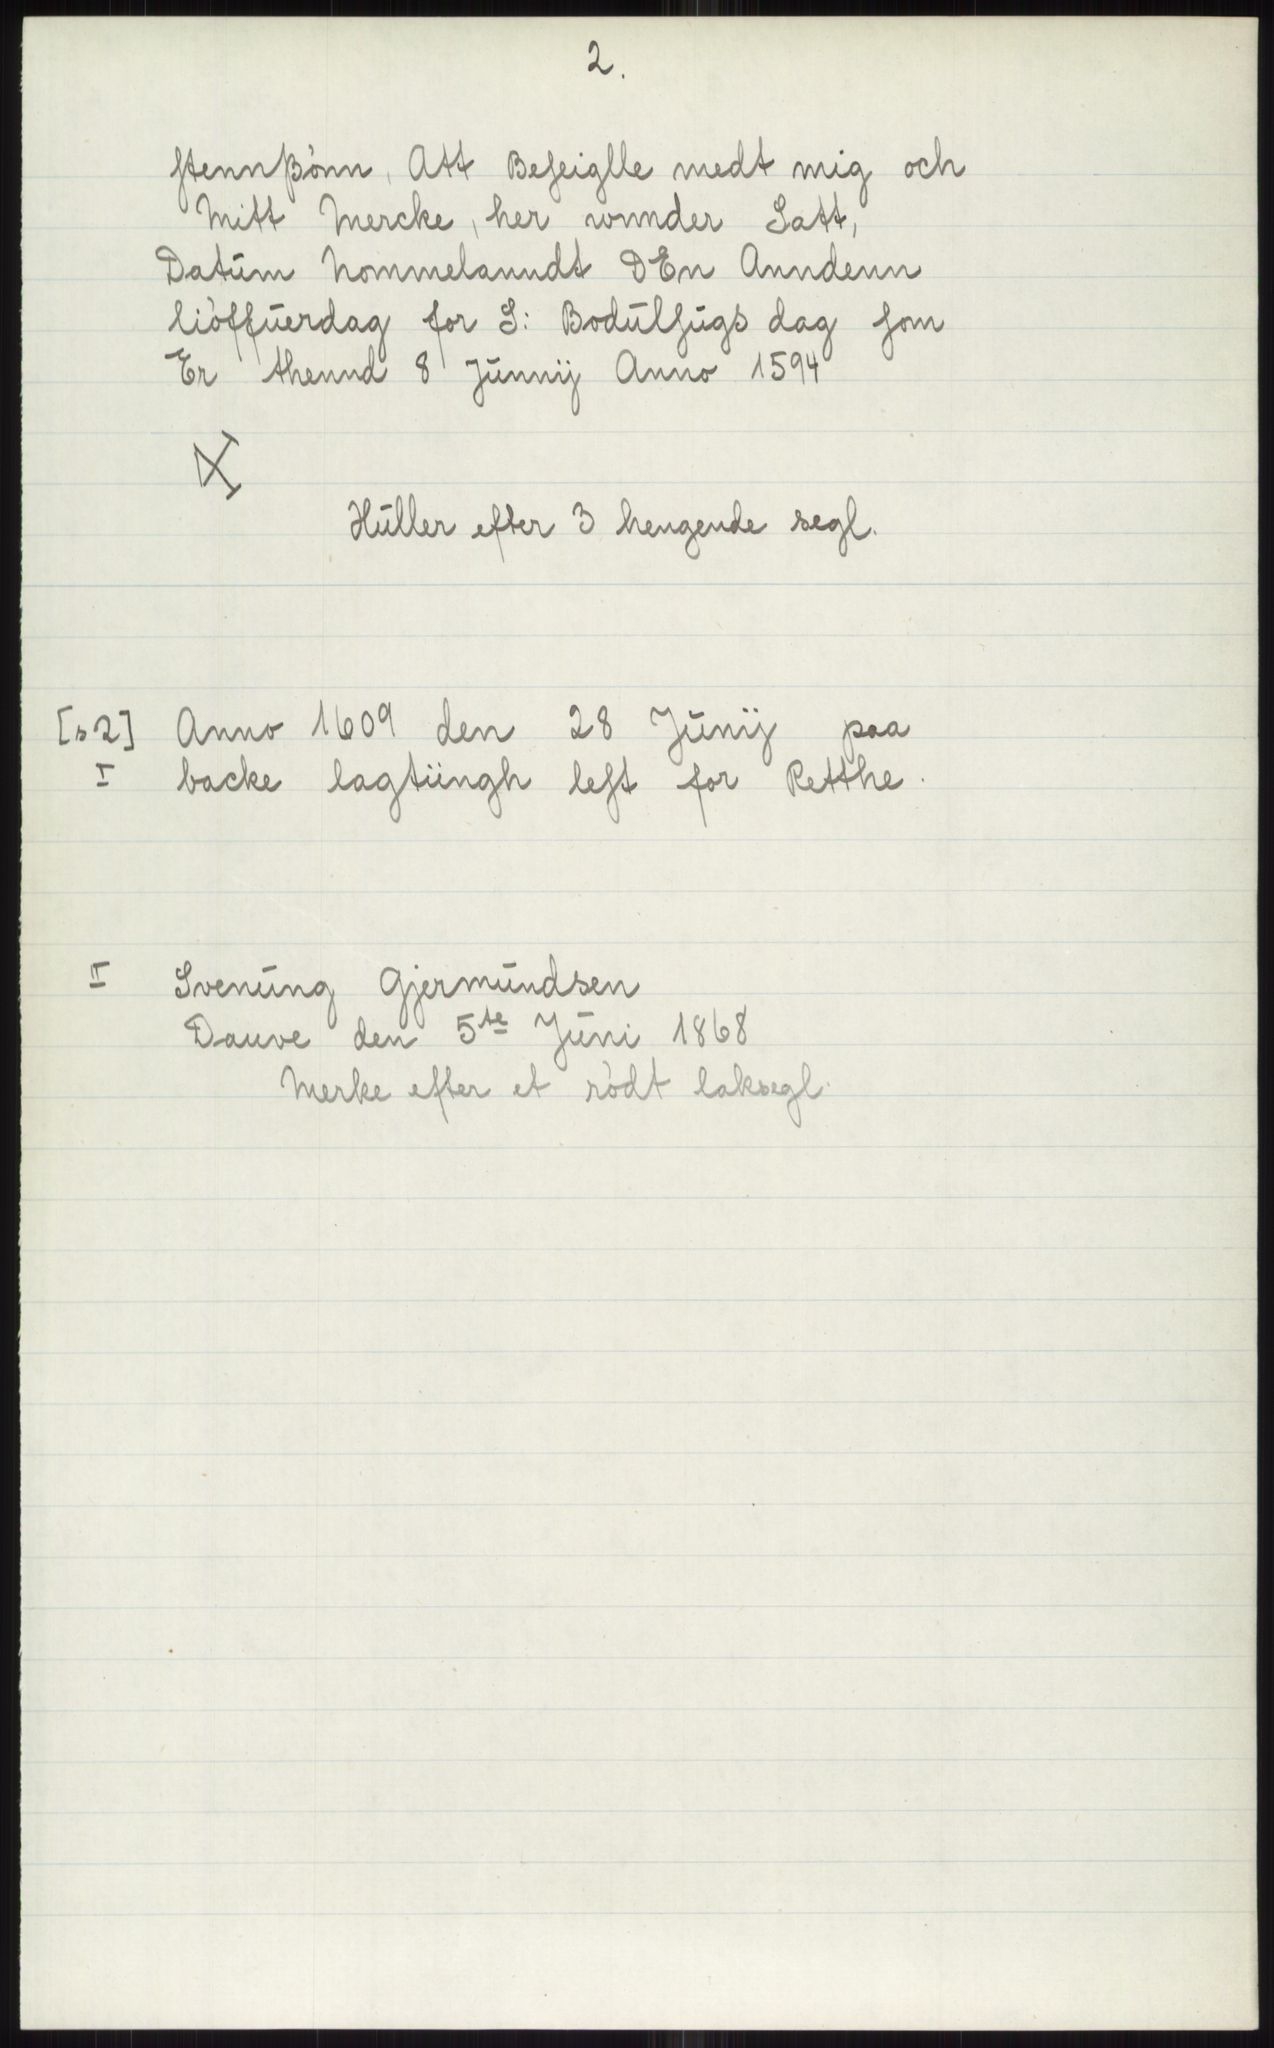 2.
ſtennßønn, Att Beſeiglle medt mig och
Mitt Mercke, her wnnder Satt,
Datům Nommelanndt DEn Anndenn
liøffůerdag for S: Bodůlſůgs dag ſom
Er thennd 8 Jůnnij Anno 1594
Hůller efter 3 hengende segl.
[s 2] Anno 1609 den 28 Jůnij paa
I backe lagtiingh leſt for Retthe.
II Svenůng Gjermůndsen
Dauve den 5te Jůni 1868
Merke efter et rødt laksegl.